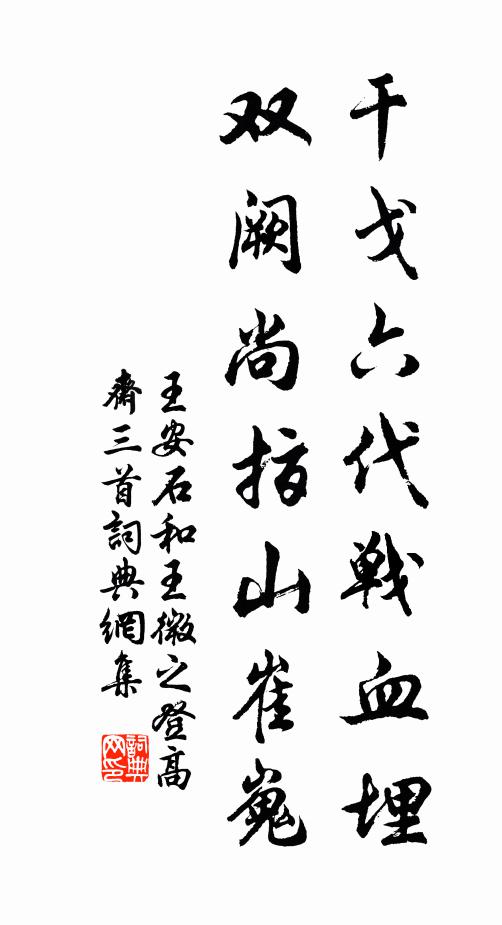 干戈六代戦血埋
双阙尚指山崔嵬
王安石和王微之登高
齋三首詞典網集
詞典网印